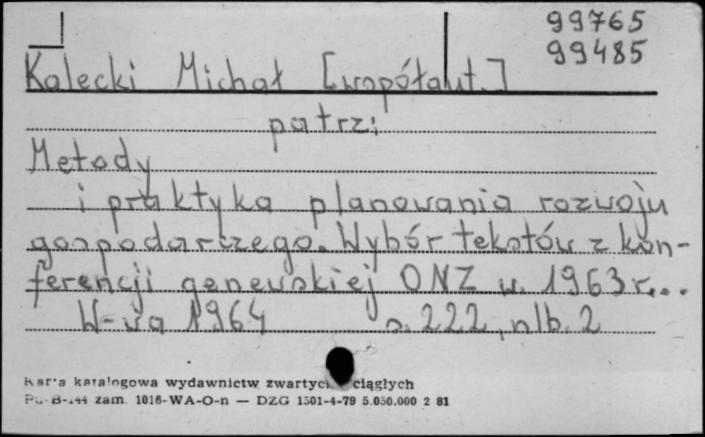 99765
99485
Kalecki Michał [współaut.]
patrz:
Metody
i praktyka planowania rozwoju
gospodarczego. Wybór tekstów z kon-
ferencji genewskiej ONZ w 1963 r...
W-wa 1964 s. 222, nlb. 2
Karta katalogowa wydawnictw zwartych ciągłych
Pu-B-144 zam. 1016-WA-O-n — DZG 1301-4-79 5.050.000 2 81